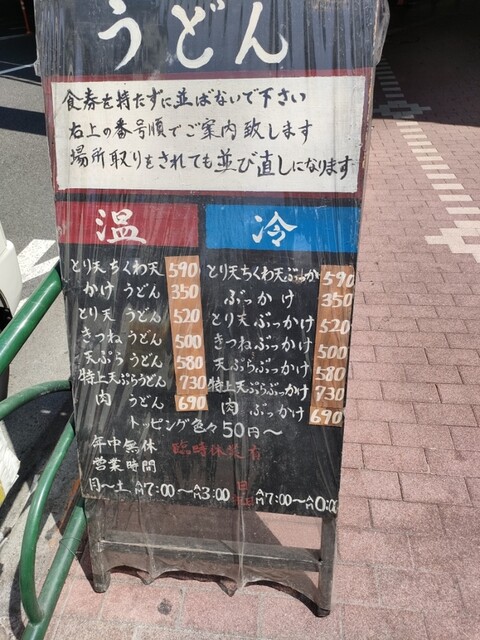 うどん
食券を持たずに並ばないで下さい
右上の番号順でご案内致します
場所取りをされても並び直しになります
温
とり天ちくわ天 590
かけ うどん 350
とり天 うどん 520
きつねうどん 500
天ぷら うどん 580
特上天ぷらうどん 730
肉 うどん 690
冷
とり天ちくわ天ぶっかけ 590
ぶっかけ 350
とり天 ぶっかけ 520
きつねぶっかけ 500
天ぷらぶっかけ 580
特上天ぷらぶっかけ 730
肉 ぶっかけ 690
トッピング色々 50円〜
年中無休 臨時休業有
営業時間
月〜土 AM7:00〜AM3:00 日 AM7:00〜AM0:00